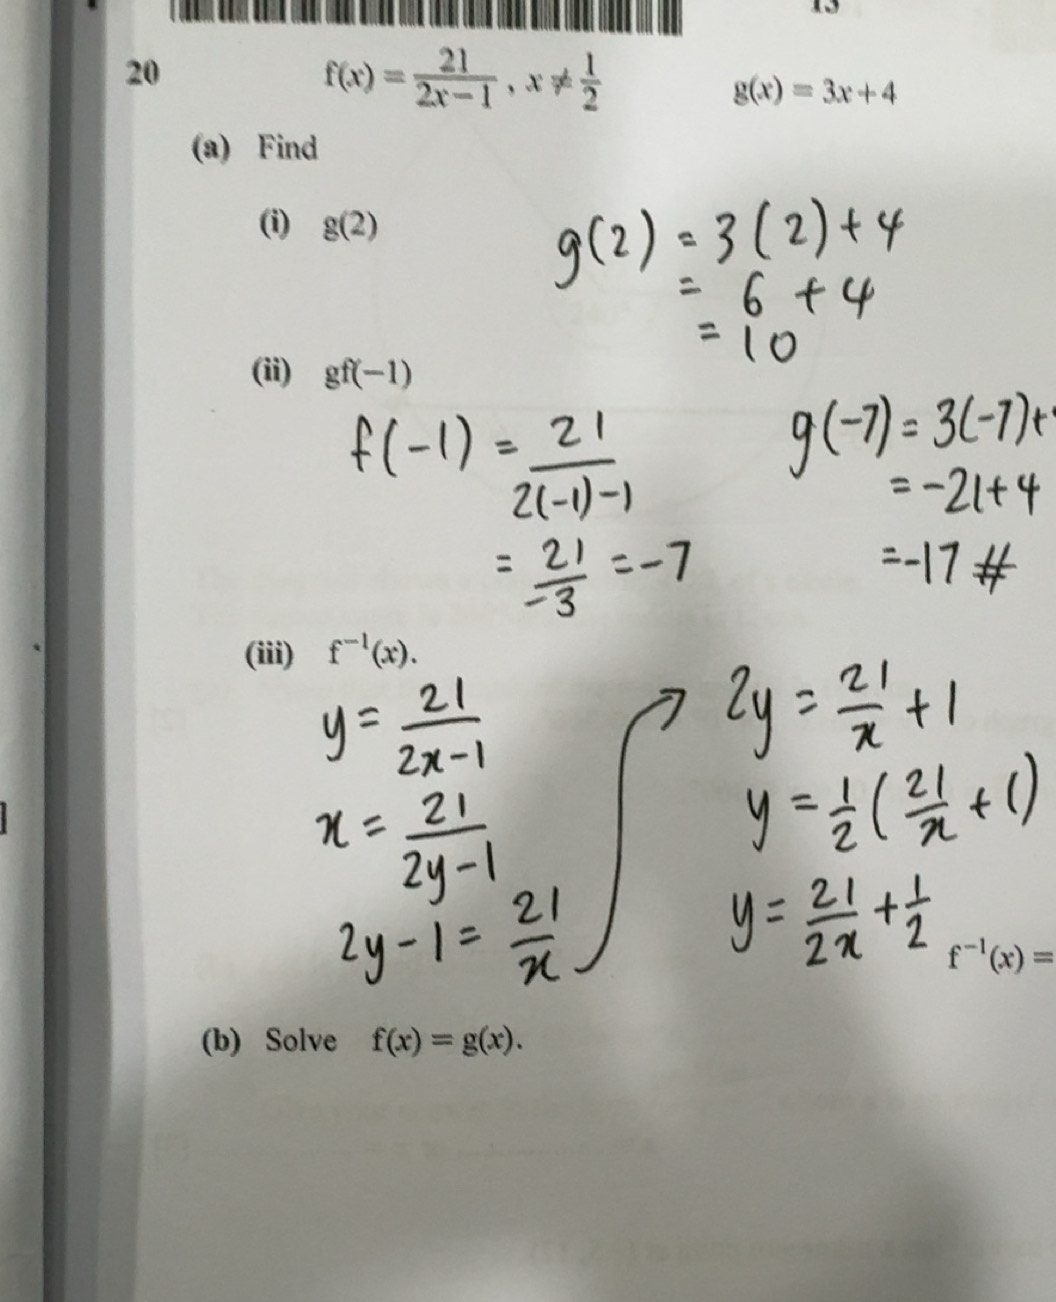 13
20 f(x) = 21/(2x−1) , x ≠ 1/2 g(x) = 3x+4
(a) Find
(i) g(2)
g(2) = 3(2)+4
= 6 + 4
= 10
(ii) gf(−1)
f(-1) = 21/(2(-1)-1)
= 21/-3 = -7
g(-7) = 3(-7)+
= -21+4
=-17 #
(iii) f⁻¹(x).
y = 21/(2x-1)
x = 21/(2y-1)
2y-1 = 21/x
→ 2y = 21/x + 1
y = 1/2 (21/x + 1)
y = 21/2x + 1/2
f⁻¹(x) =
(b) Solve f(x) = g(x).